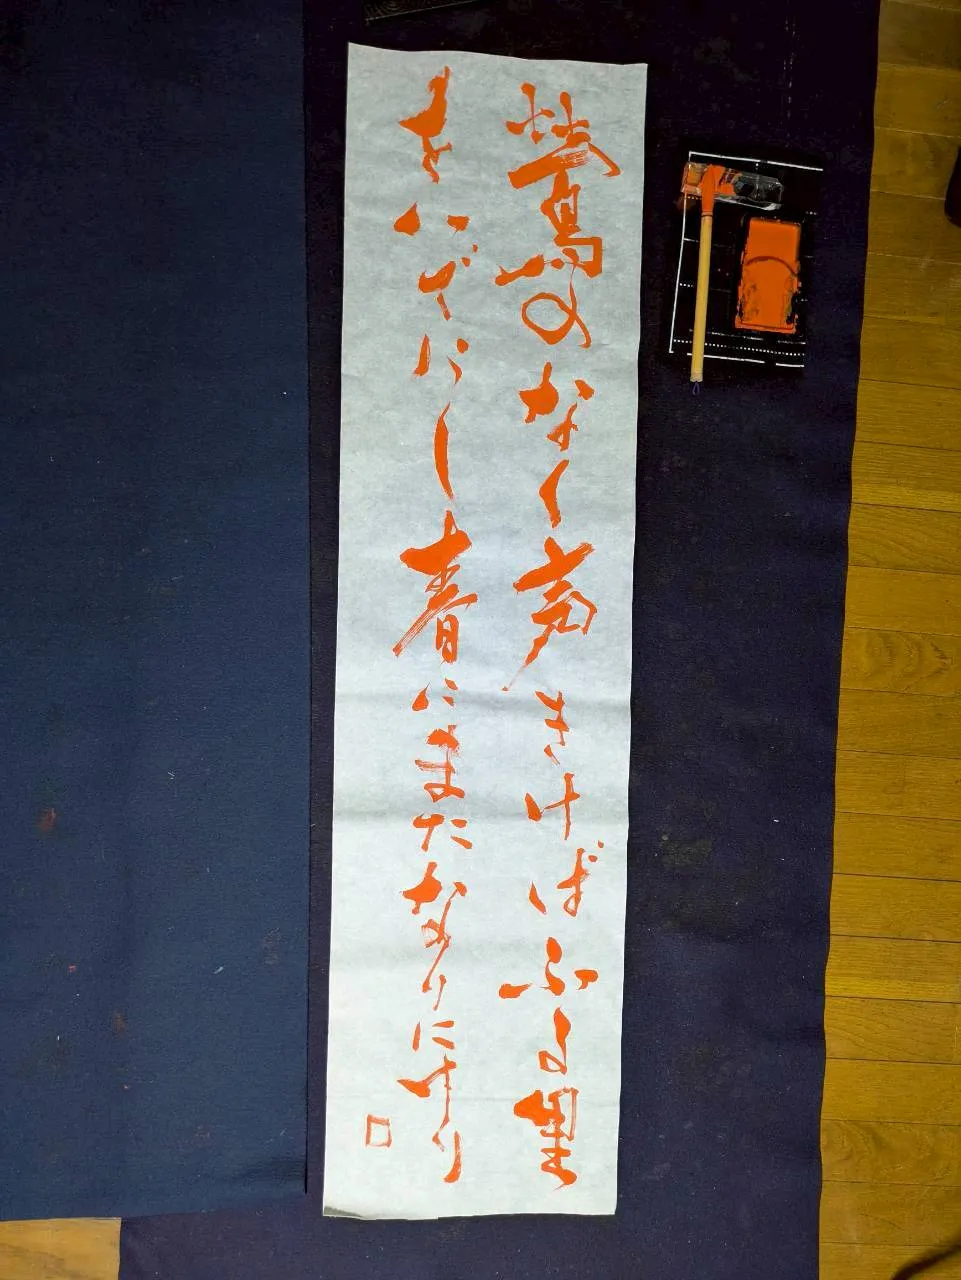 鶯のなく声きけばふる里
をいでにし春にまたなりにけり